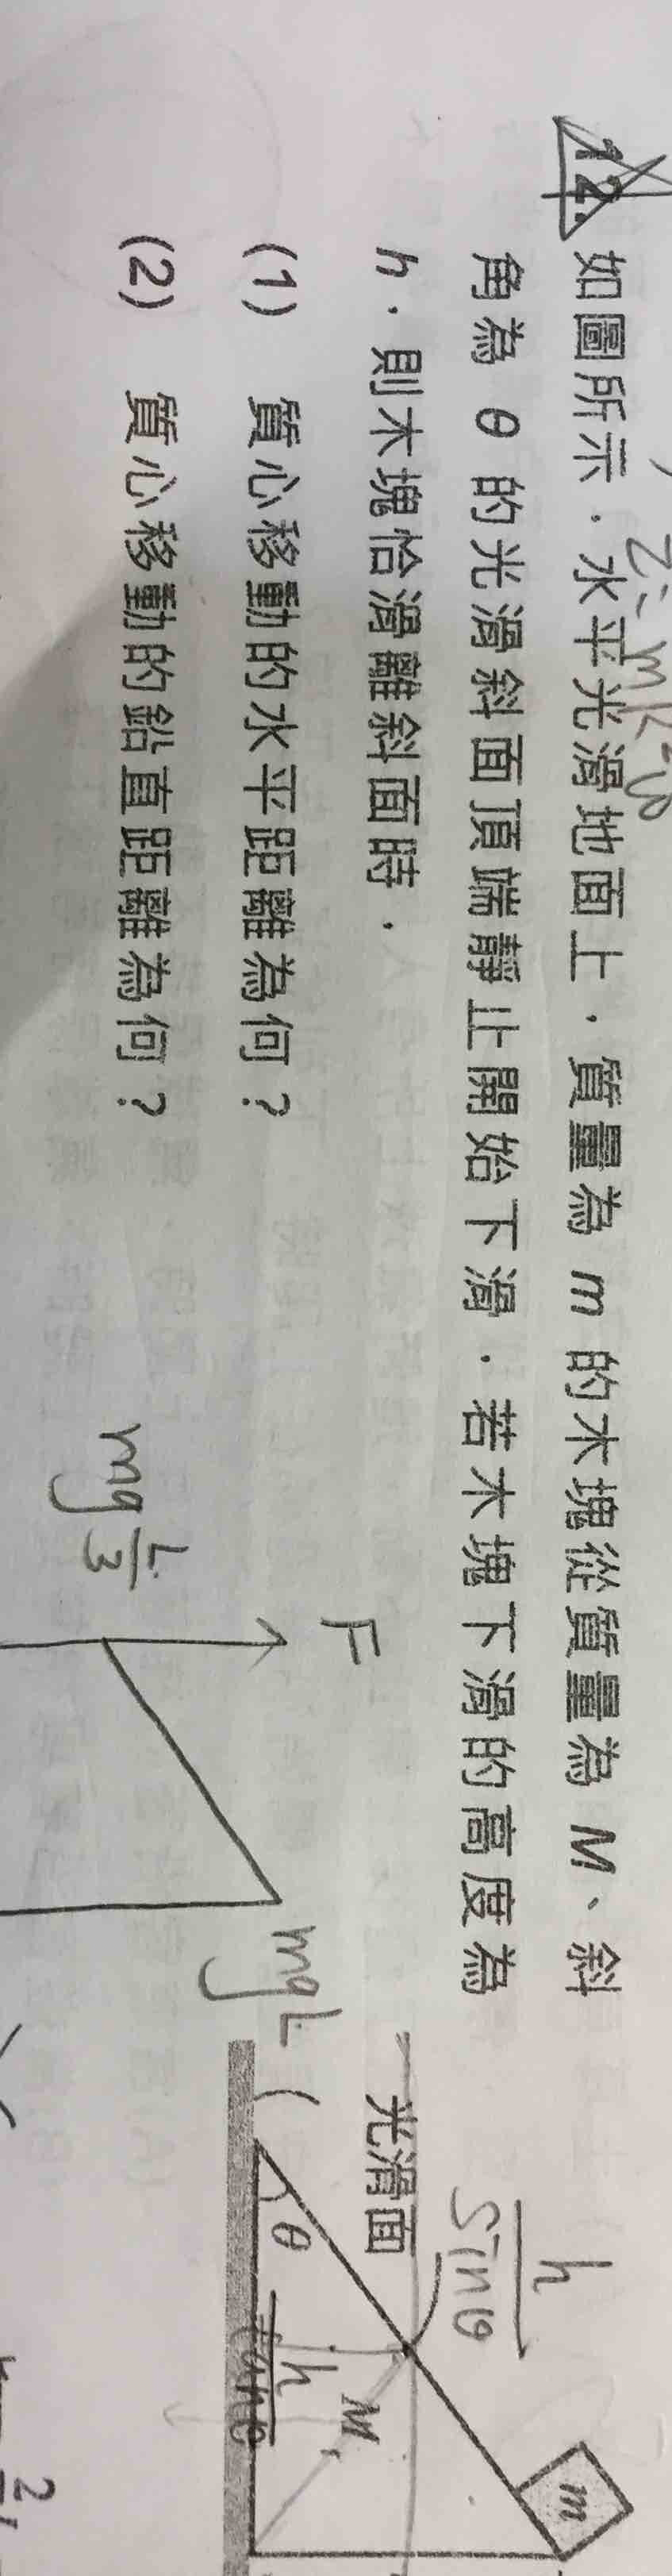 12. 如圖所示，水平光滑地面上，質量為 m 的木塊從質量為 M、斜
角為 θ 的光滑斜面頂端靜止開始下滑，若木塊下滑的高度為
h，則木塊恰滑離斜面時，
(1) 質心移動的水平距離為何？
(2) 質心移動的鉛直距離為何？
h
sinθ
光滑面
m
M
θ
h
tanθ
F
mgL
mg L/3